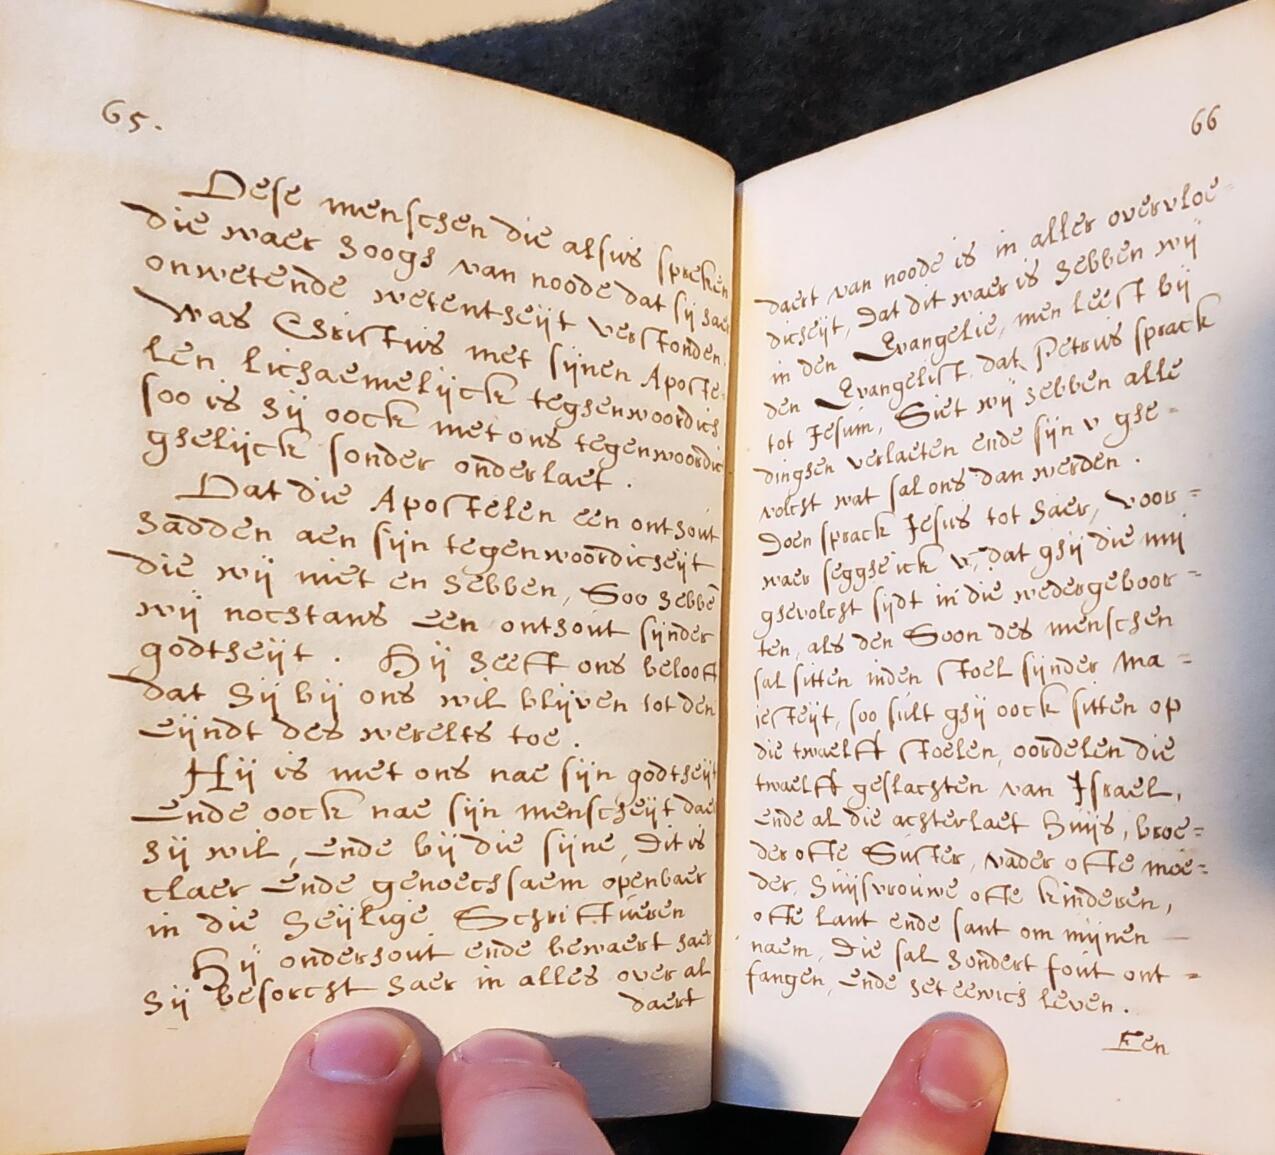 65.
Dese menschen die alsus spreken
die waer hoogh van noode dat sij haer
onwetende wetentheijt verstonden.
Was Christus met sijnen Aposte-
len lichaemelijck teghenwoordich
soo is hij oock met ons tegenwoordich
ghelijck sonder onderlaet.
Dat die Apostelen een onthout
hadden aen sijn tegenwoordicheijt
die wij niet en hebben, Soo hebbē
wij nochtans een onthout sijnder
godtheijt. Hij heeft ons belooft
dat hij bij ons wil blijven tot den
eijndt des werelts toe.
Hij is met ons nae sijn godtheijt
Ende oock nae sijn menscheijt daer
hij wil, ende bij die sijne, dit is
claer ende genoechsaem openbaer
in die heijlige Schriftueren
Hij onderhout ende bewaert haer
hij besorcht haer in alles over al
daert
66
daert van noode is in aller overvloe-
dicheijt, Dat dit waer is hebben wij
in den Evangelie, men leest bij
den Evangelist dat Petrus sprack
tot Jesum, Siet wij hebben alle
dinghen verlaeten ende sijn v ghe-
volcht wat sal ons dan werden.
Doen sprack Jesus tot haer, voor=
waer segghe ick v, dat ghij die mij
ghevolcht sijdt in die wedergeboor=
ten, als den Soon des menschen
sal sitten inden stoel sijnder Ma=
jesteijt, soo sult ghij oock sitten op
die twaelff stoelen, oordelen die
twaelff geslachten van Israel,
ende al die achterlaet huijs, broe=
der offe Suster, vader offe moe=
der, huijsvrouwe offe kinderen,
offe lant ende sant om mijnen
naem, Die sal hondert fout ont=
fangen, ende het eewich leven.
Een